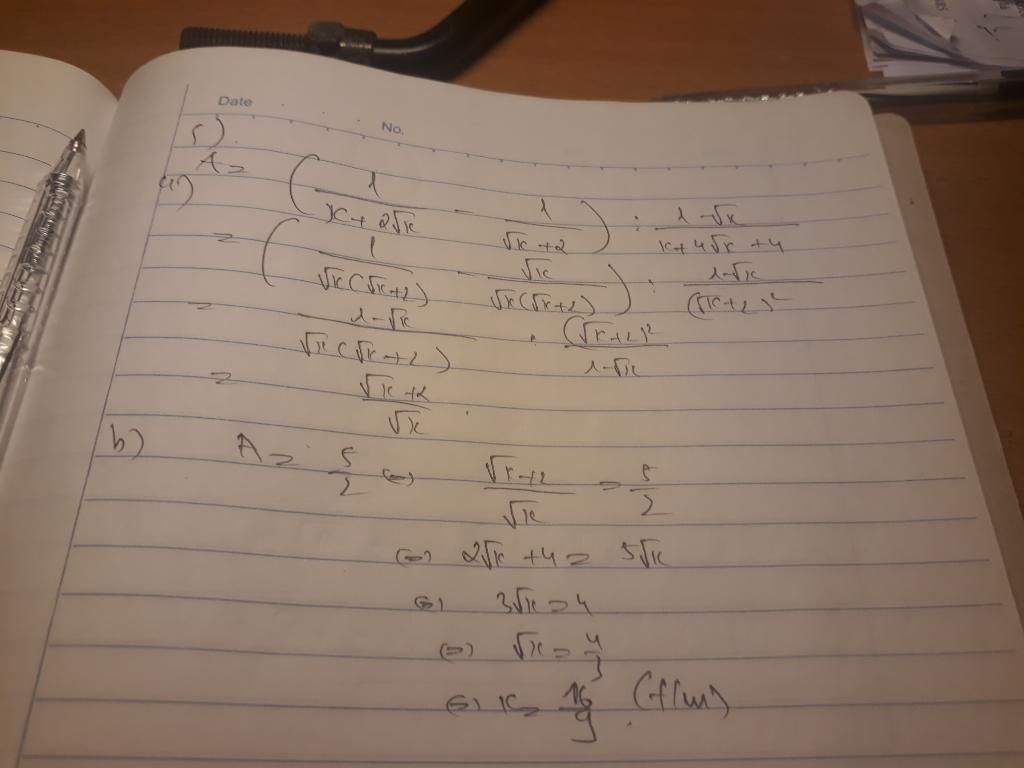 Date
No.
5)
A = ( 1/(x+2√x) - 1/(√x+2) ) : (1-√x)/(x+4√x+4)
a)
= ( 1/(√x(√x+2)) - √x/(√x(√x+2)) ) : (1-√x)/(√x+2)²
= (1-√x)/(√x(√x+2)) . (√x+2)²/(1-√x)
= (√x+2)/√x .
b) A = 5/2 ⇔ (√x+2)/√x = 5/2
⇔ 2√x + 4 = 5√x
⇔ 3√x = 4
⇔ √x = 4/3
⇔ x = 16/9 (t/m)